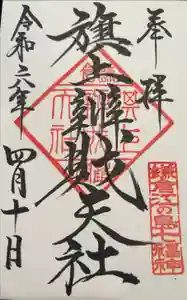 奉拝
旗上辨財天社
令和六年
四月十日
鎌倉江の島七福神